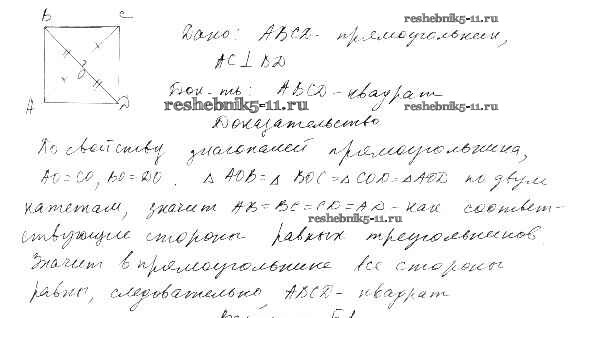 B C
reshebnik5-11.ru
Дано: ABCD - прямоугольник,
AC⊥BD
Док-ть: ABCD - квадрат
A D
reshebnik5-11.ru reshebnik5-11.ru
Доказательство
По свойству диагоналей прямоугольника,
AO=CO, BO=DO. △AOB=△BOC=△COD=△AOD по двум
катетам, значит AB=BC=CD=AD - как соответ-
reshebnik5-11.ru
ствующие стороны равных треугольников.
Значит в прямоугольнике все стороны
равны, следовательно, ABCD - квадрат